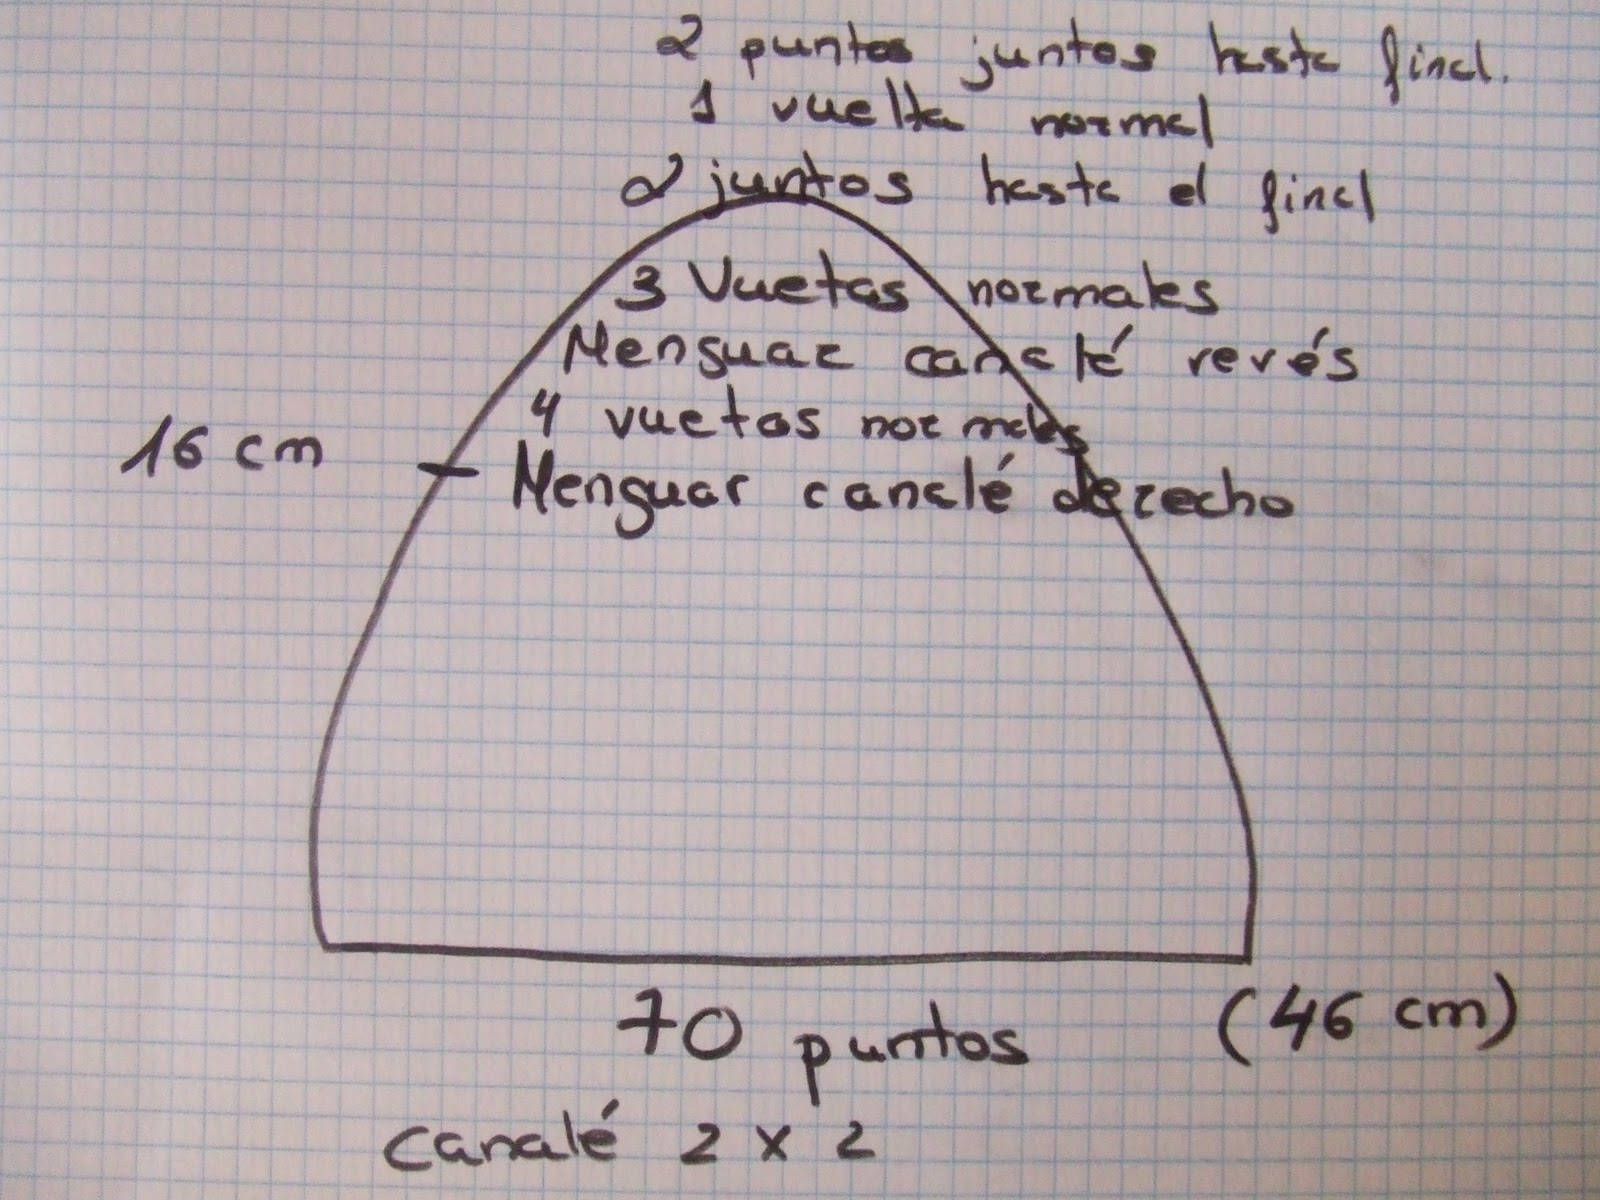 2 puntos juntos hasta final.
1 vuelta normal
2 juntos hasta el final
3 Vuetas normales
Menguar canalé revés
4 vuetas normales
16 cm
Menguar canalé derecho
70 puntos (46 cm)
canalé 2 x 2